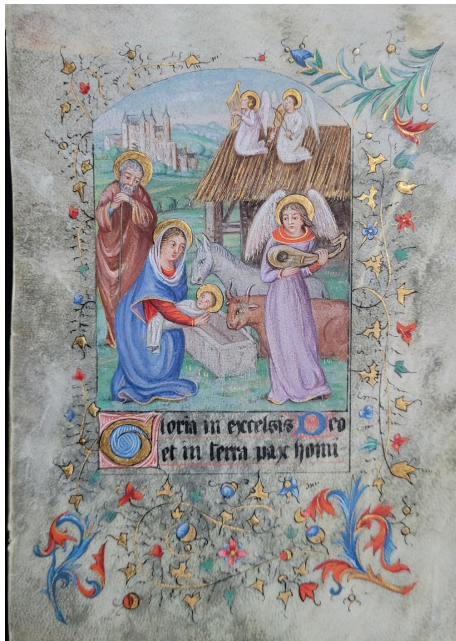 Gloria in excelsis Deo
et in terra pax homi